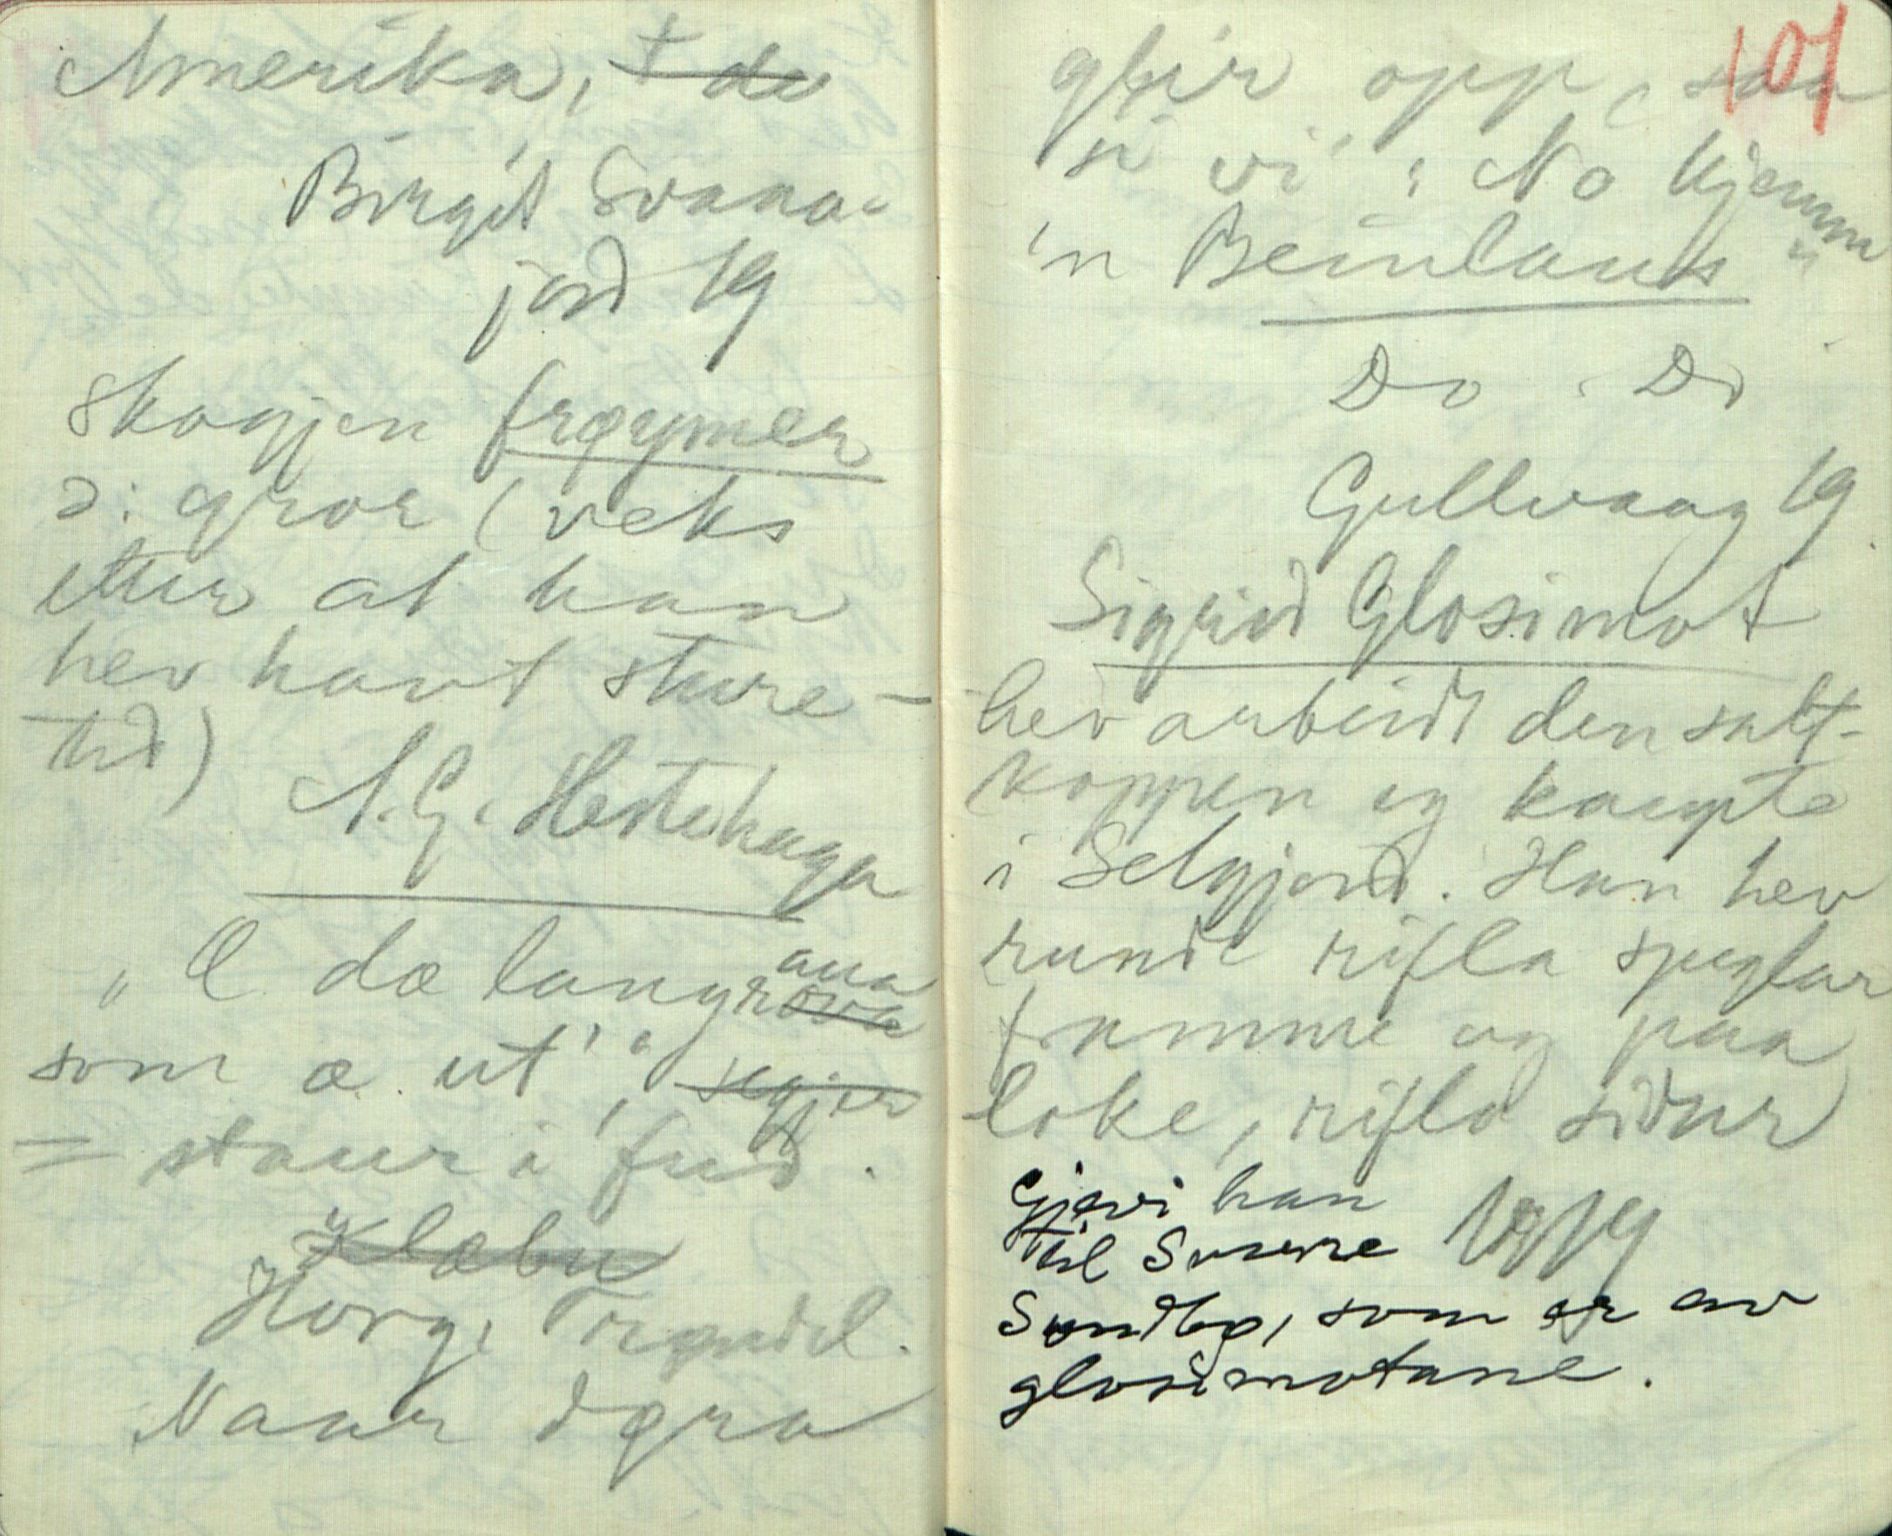 Amerika, t do
Birgit Svana-
jord 19
Skogjen frøymer
ɔ: gror (veks
etter at han
hev havt sture-
tid)
N. G. Hestehagen
"E dæ langraua
som æ ut'," segjer
= staur i fud.
Klæbu
Horg, Trøndel.
Naar døra
101
glir opp, saa
si vi: No kjemm
'n Beinlaus"
Do Do
Gullvaag 19
Sigrid Glosimot
hev arbeidt den salt-
koppen eg kaupte
i Selgjord. Han hev
runde rifla speglar
framme og paa
loke, rifla sidur
Gjevi han
til Sverre
Sundbø, som er av
glosimotane.